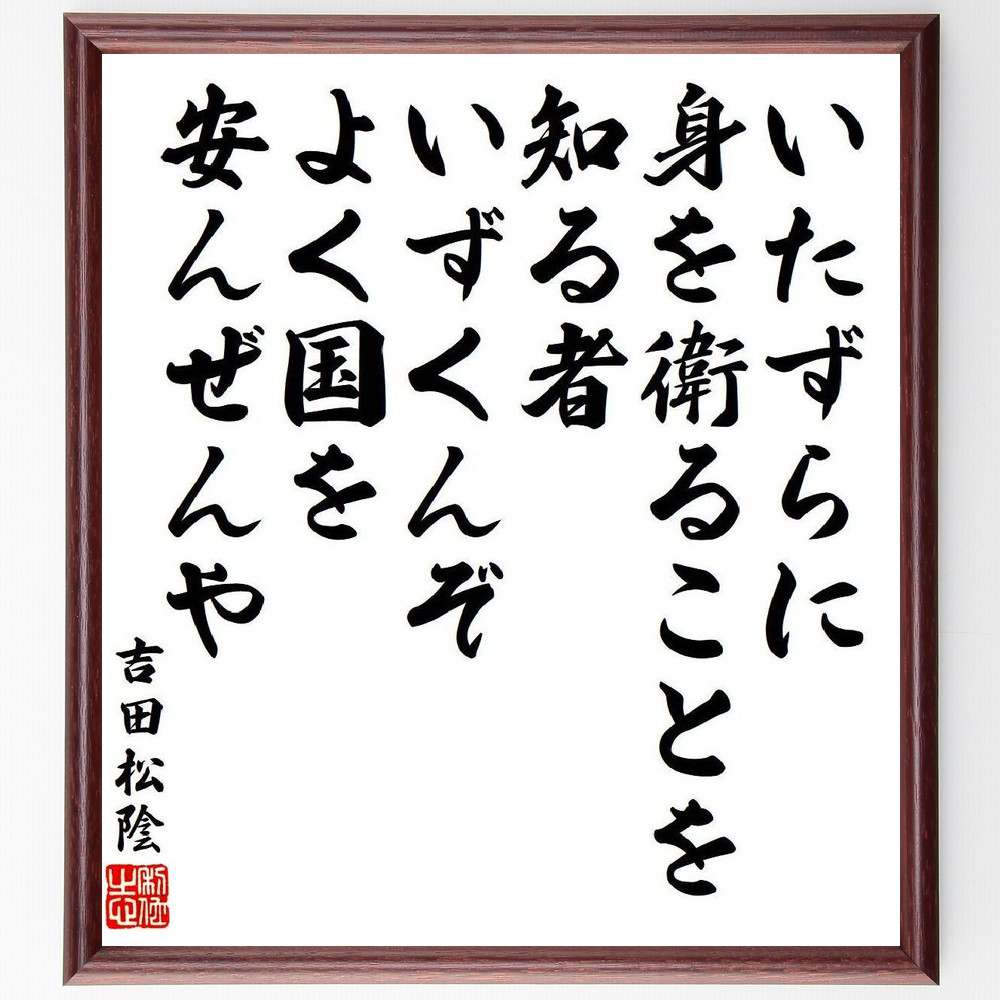 いたずらに
身を衛ることを
知る者
いずくんぞ
よく国を
安んぜんや
吉田松陰